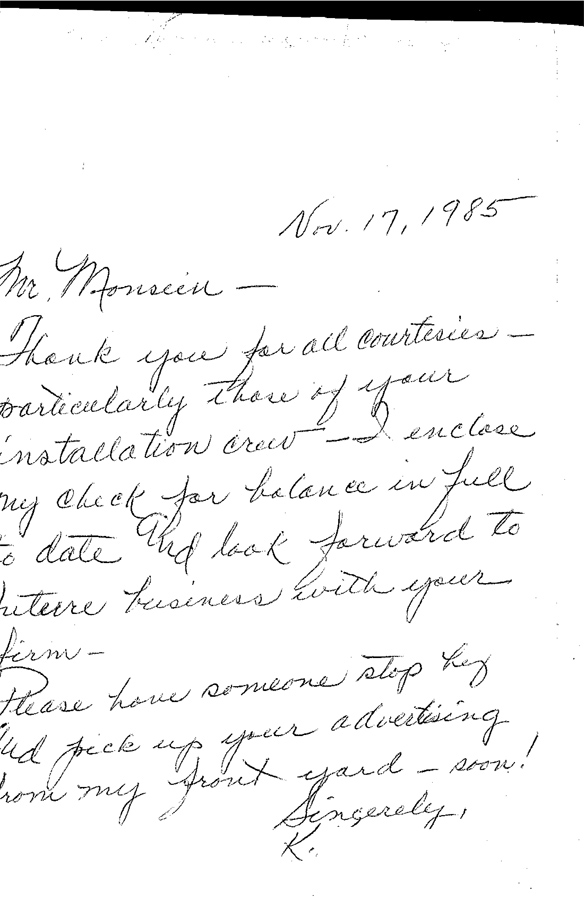 Nov. 17, 1985
Mr. Monseen —
Thank you for all courtesies —
particularly those of your
installation crew — I enclose
my check for balance in full
to date And look forward to
future business with your
firm —
Please have someone stop by
And pick up your advertising
from my front yard — soon!
Singerely,
K.